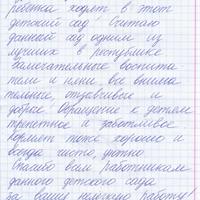 ребенка ходят в этот
детский сад. Считаю
данный сад одним из
лучших в республике
Замечательные воспита
тели и няни, все внима
тельные, отзывчивые и
добрые. Обращение к детям
приятное и заботливое
кормят тоже хорошо и
всегда чисто, уютно
Спасибо вам работникам
данного детского сада
за вашу нелегкую работу!